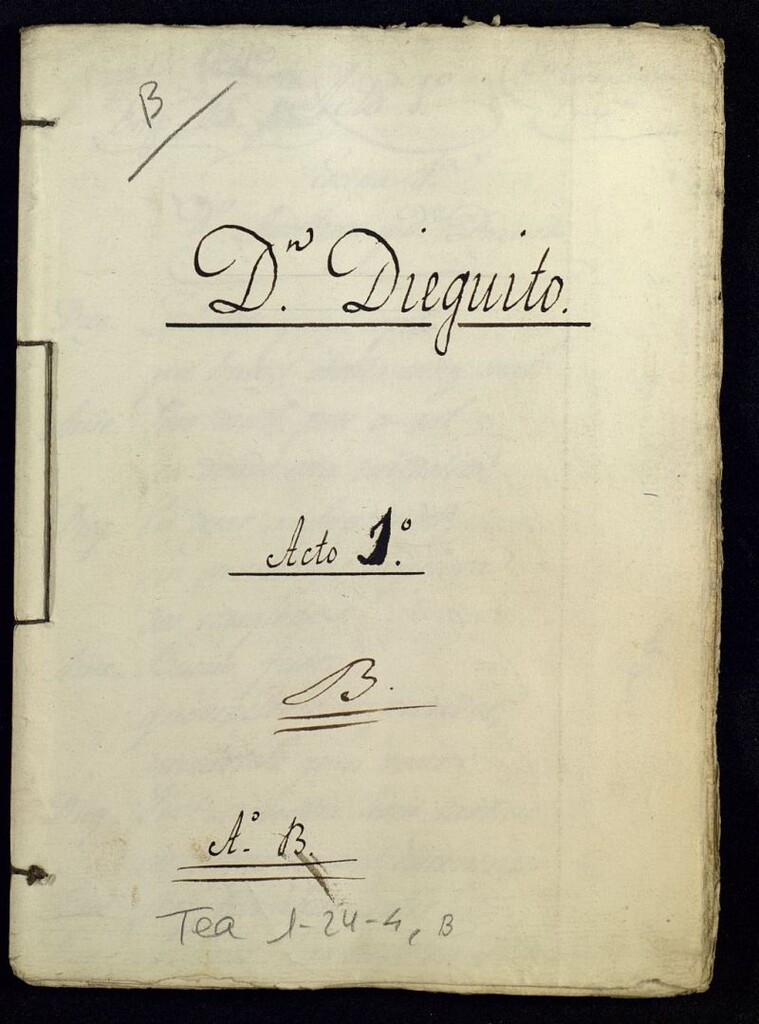 B
Dⁿ. Dieguito.
Acto 1.º
B.
A.º B.
Tea 1-24-4, B